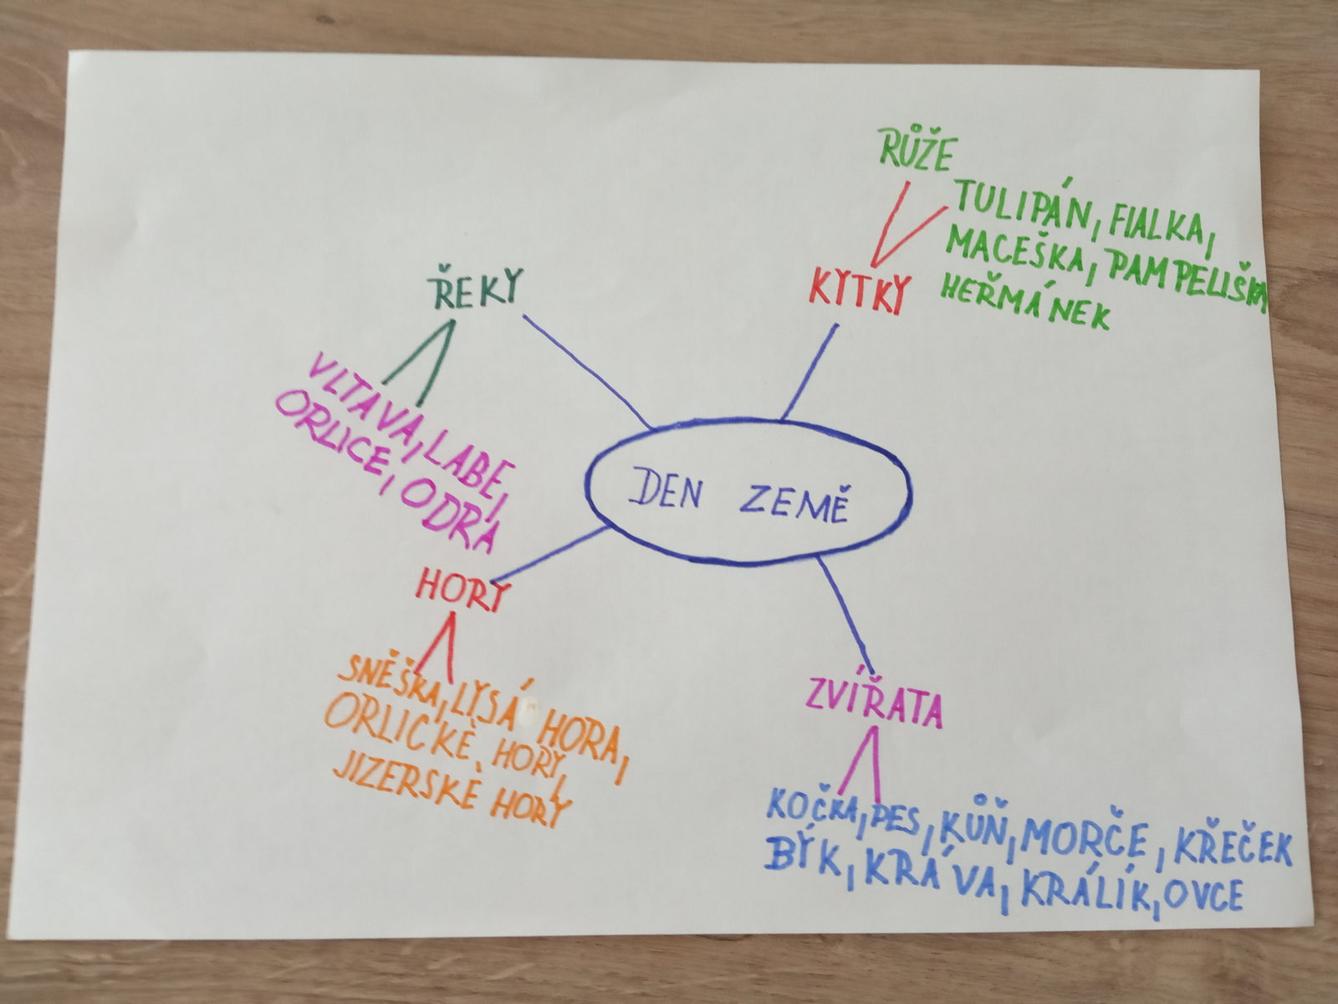 RŮŽE
TULIPÁN, FIALKA,
MACEŠKA, PAMPELIŠKA
HEŘMÁNEK
KYTKY
ŘEKY
VLTAVA, LABE,
ORLICE, ODRA
DEN ZEMĚ
HORY
SNĚŠKA, LYSÁ HORA,
ORLICKÉ HORY,
JIZERSKÉ HORY
ZVÍŘATA
KOČKA, PES, KŮŇ, MORČE, KŘEČEK
BÝK, KRÁVA, KRÁLÍK, OVCE